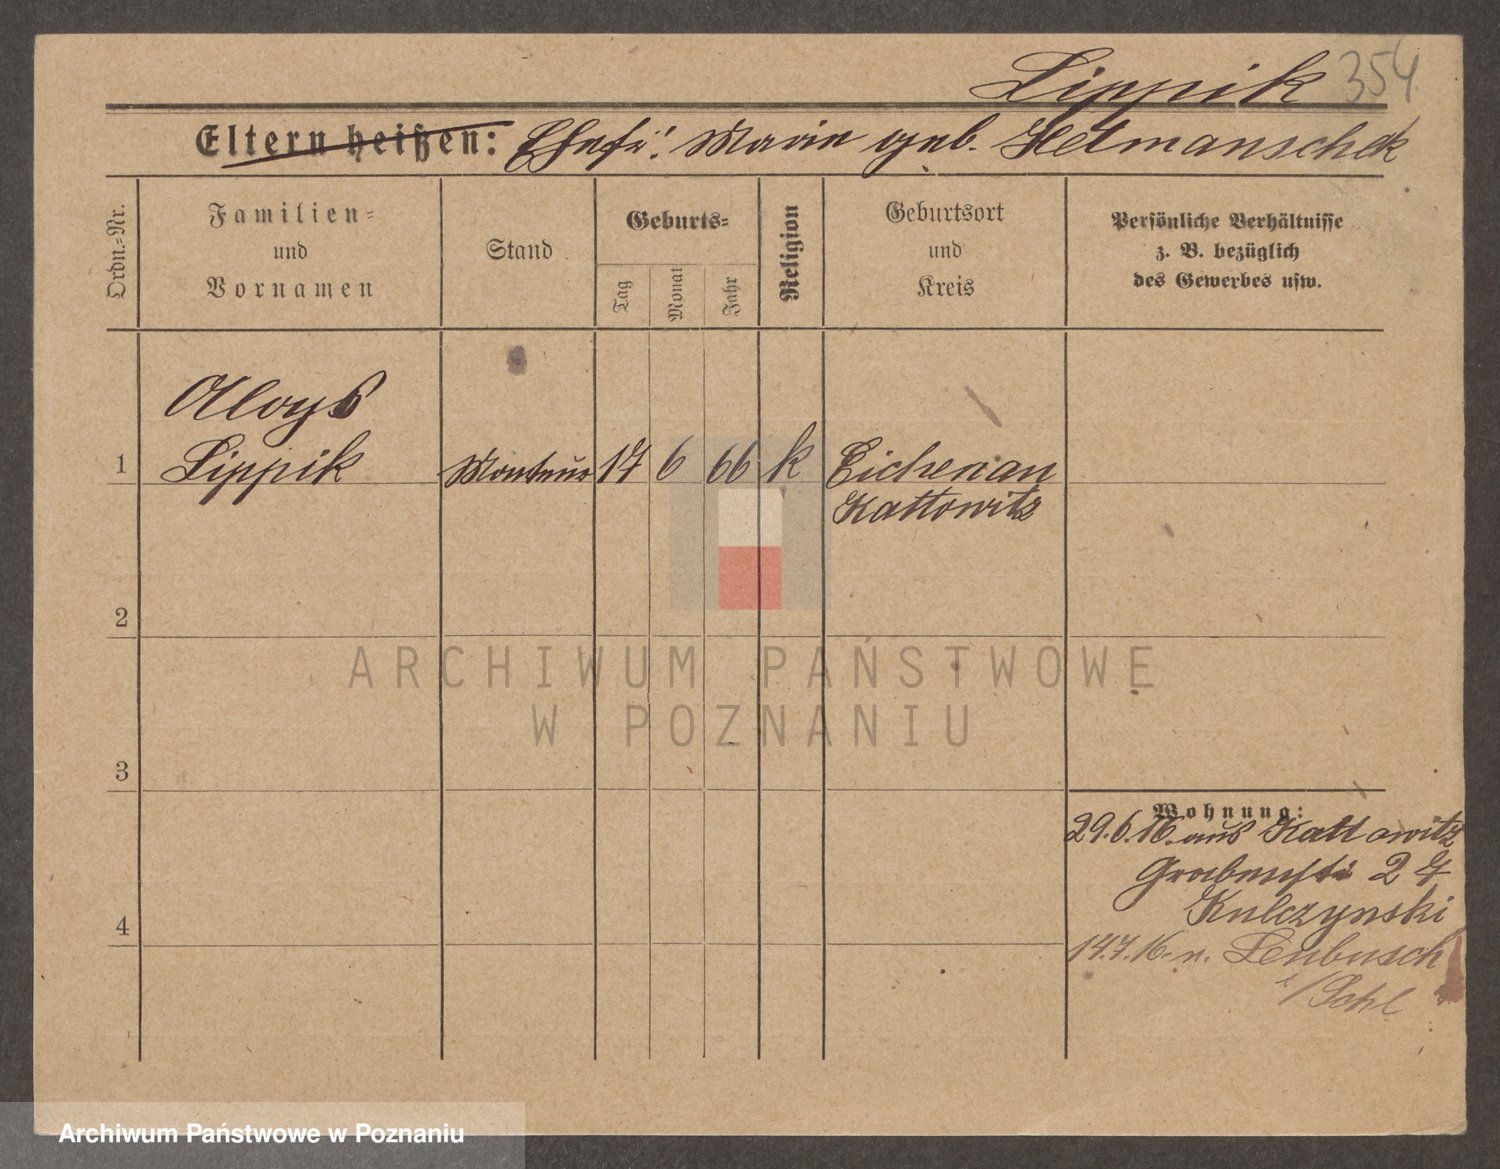 Lippik 354
Eltern heißen: Ehefr: Marie geb. Hetmanschek
Ordn.-Nr.
Familien-
und
Vornamen
Stand
Geburts-
Tag
Monat
Jahr
Religion
Geburtsort
und
Kreis
Persönliche Verhältnisse
z. B. bezüglich
des Gewerbes usw.
Aloys
1 Lippik Monteur 17 6 66 k Eichenau
Kattowitz
2
ARCHIWUM PAŃSTWOWE
W POZNANIU
3
Wohnung:
29.6.16. aus Kattowitz
Grabenstr 27
Kulczynski
4
14.7.16. n. Leubusch
i/Schl
Archiwum Państwowe w Poznaniu